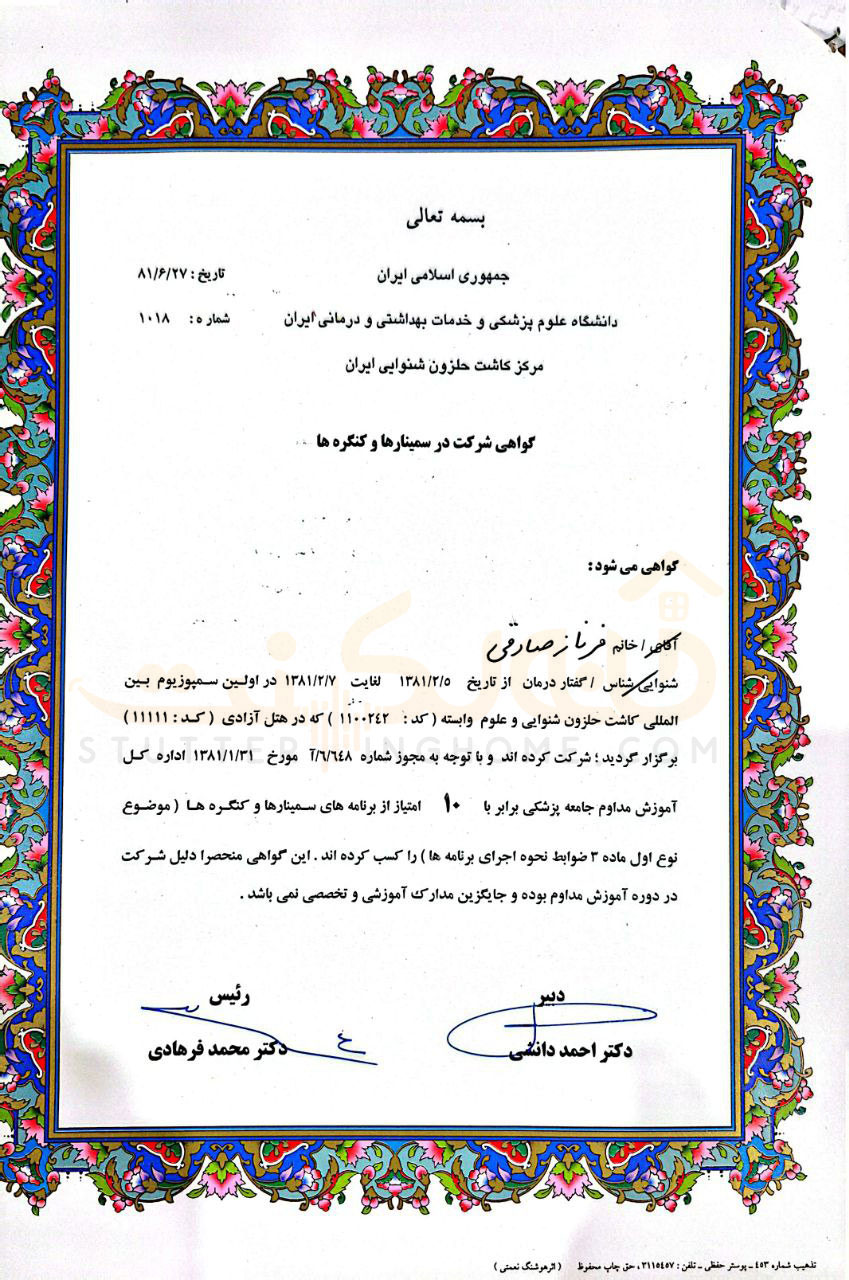 بسمه تعالی
جمهوری اسلامی ایران
تاریخ : ۸۱/۶/۲۷
دانشگاه علوم پزشکی و خدمات بهداشتی و درمانی ایران
شماره : ۱۰۱۸
مرکز کاشت حلزون شنوایی ایران
گواهی شرکت در سمینارها و کنگره ها
گواهی می شود :
آقای / خانم فرناز صادقی
شنوایی شناس / گفتار درمان از تاریخ ۱۳۸۱/۲/۵ لغایت ۱۳۸۱/۲/۷ در اولین سمپوزیوم بین
المللی کاشت حلزون شنوائی و علوم وابسته ( کد : ۱۱۰۰۲۴۲ ) که در هتل آزادی ( کد : ۱۱۱۱۱ )
برگزار گردید ؛ شرکت کرده اند و با توجه به مجوز شماره ۶/۶۴۸/آ مورخ ۱۳۸۱/۱/۳۱ اداره کل
آموزش مداوم جامعه پزشکی برابر با ۱۰ امتیاز از برنامه های سمینارها و کنگره ها ( موضوع
نوع اول ماده ۳ ضوابط نحوه اجرای برنامه ها ) را کسب کرده اند . این گواهی منحصرا دلیل شرکت
در دوره آموزش مداوم بوده و جایگزین مدارک آموزشی و تخصصی نمی باشد .
دبیر
رئیس
دکتر احمد دانشی
دکتر محمد فرهادی
STUTTERINGHOME.COM
تذهیب شماره ۴۵۳ ـ پوستر حفظی ـ تلفن : ۳۱۱۵۴۵۷ ، حق چاپ محفوظ ( اثر هوشنگ نعمتی )